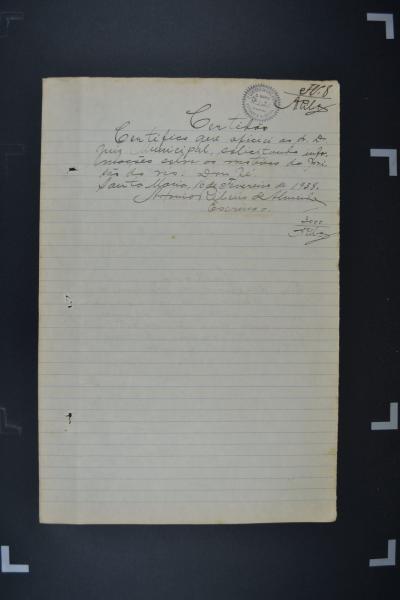 Fl. 8
Certidão
Certifico que oficiei ao dr. D.
Juiz Municipal, solicitando infor
mações sobre os motivos da pri
são do réo. Dou fé.
Santa Maria, 10 de Fevereiro de 1938.
de Almeida
Escrivão.